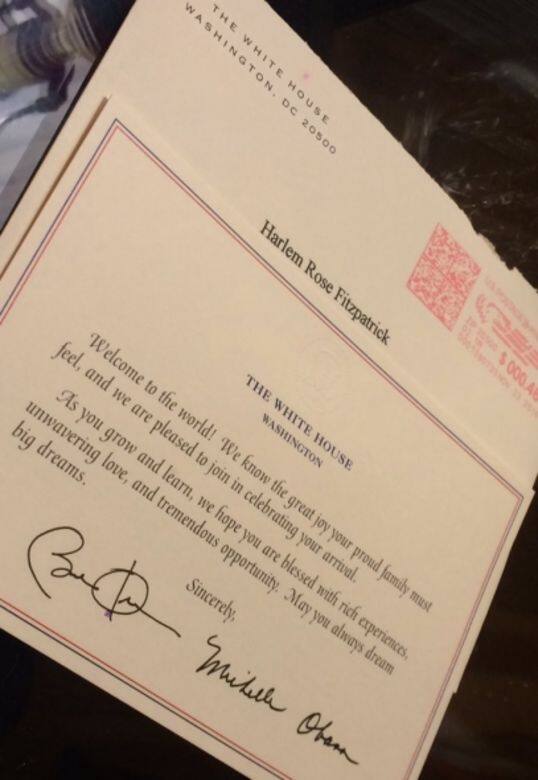 THE WHITE HOUSE
WASHINGTON, DC 20500
Harlem Rose Fitzpatrick
THE WHITE HOUSE
WASHINGTON
Welcome to the world! We know the great joy your proud family must
feel, and we are pleased to join in celebrating your arrival.
As you grow and learn, we hope you are blessed with rich experiences,
unwavering love, and tremendous opportunity. May you always dream
big dreams.
Sincerely,
Michelle Obama